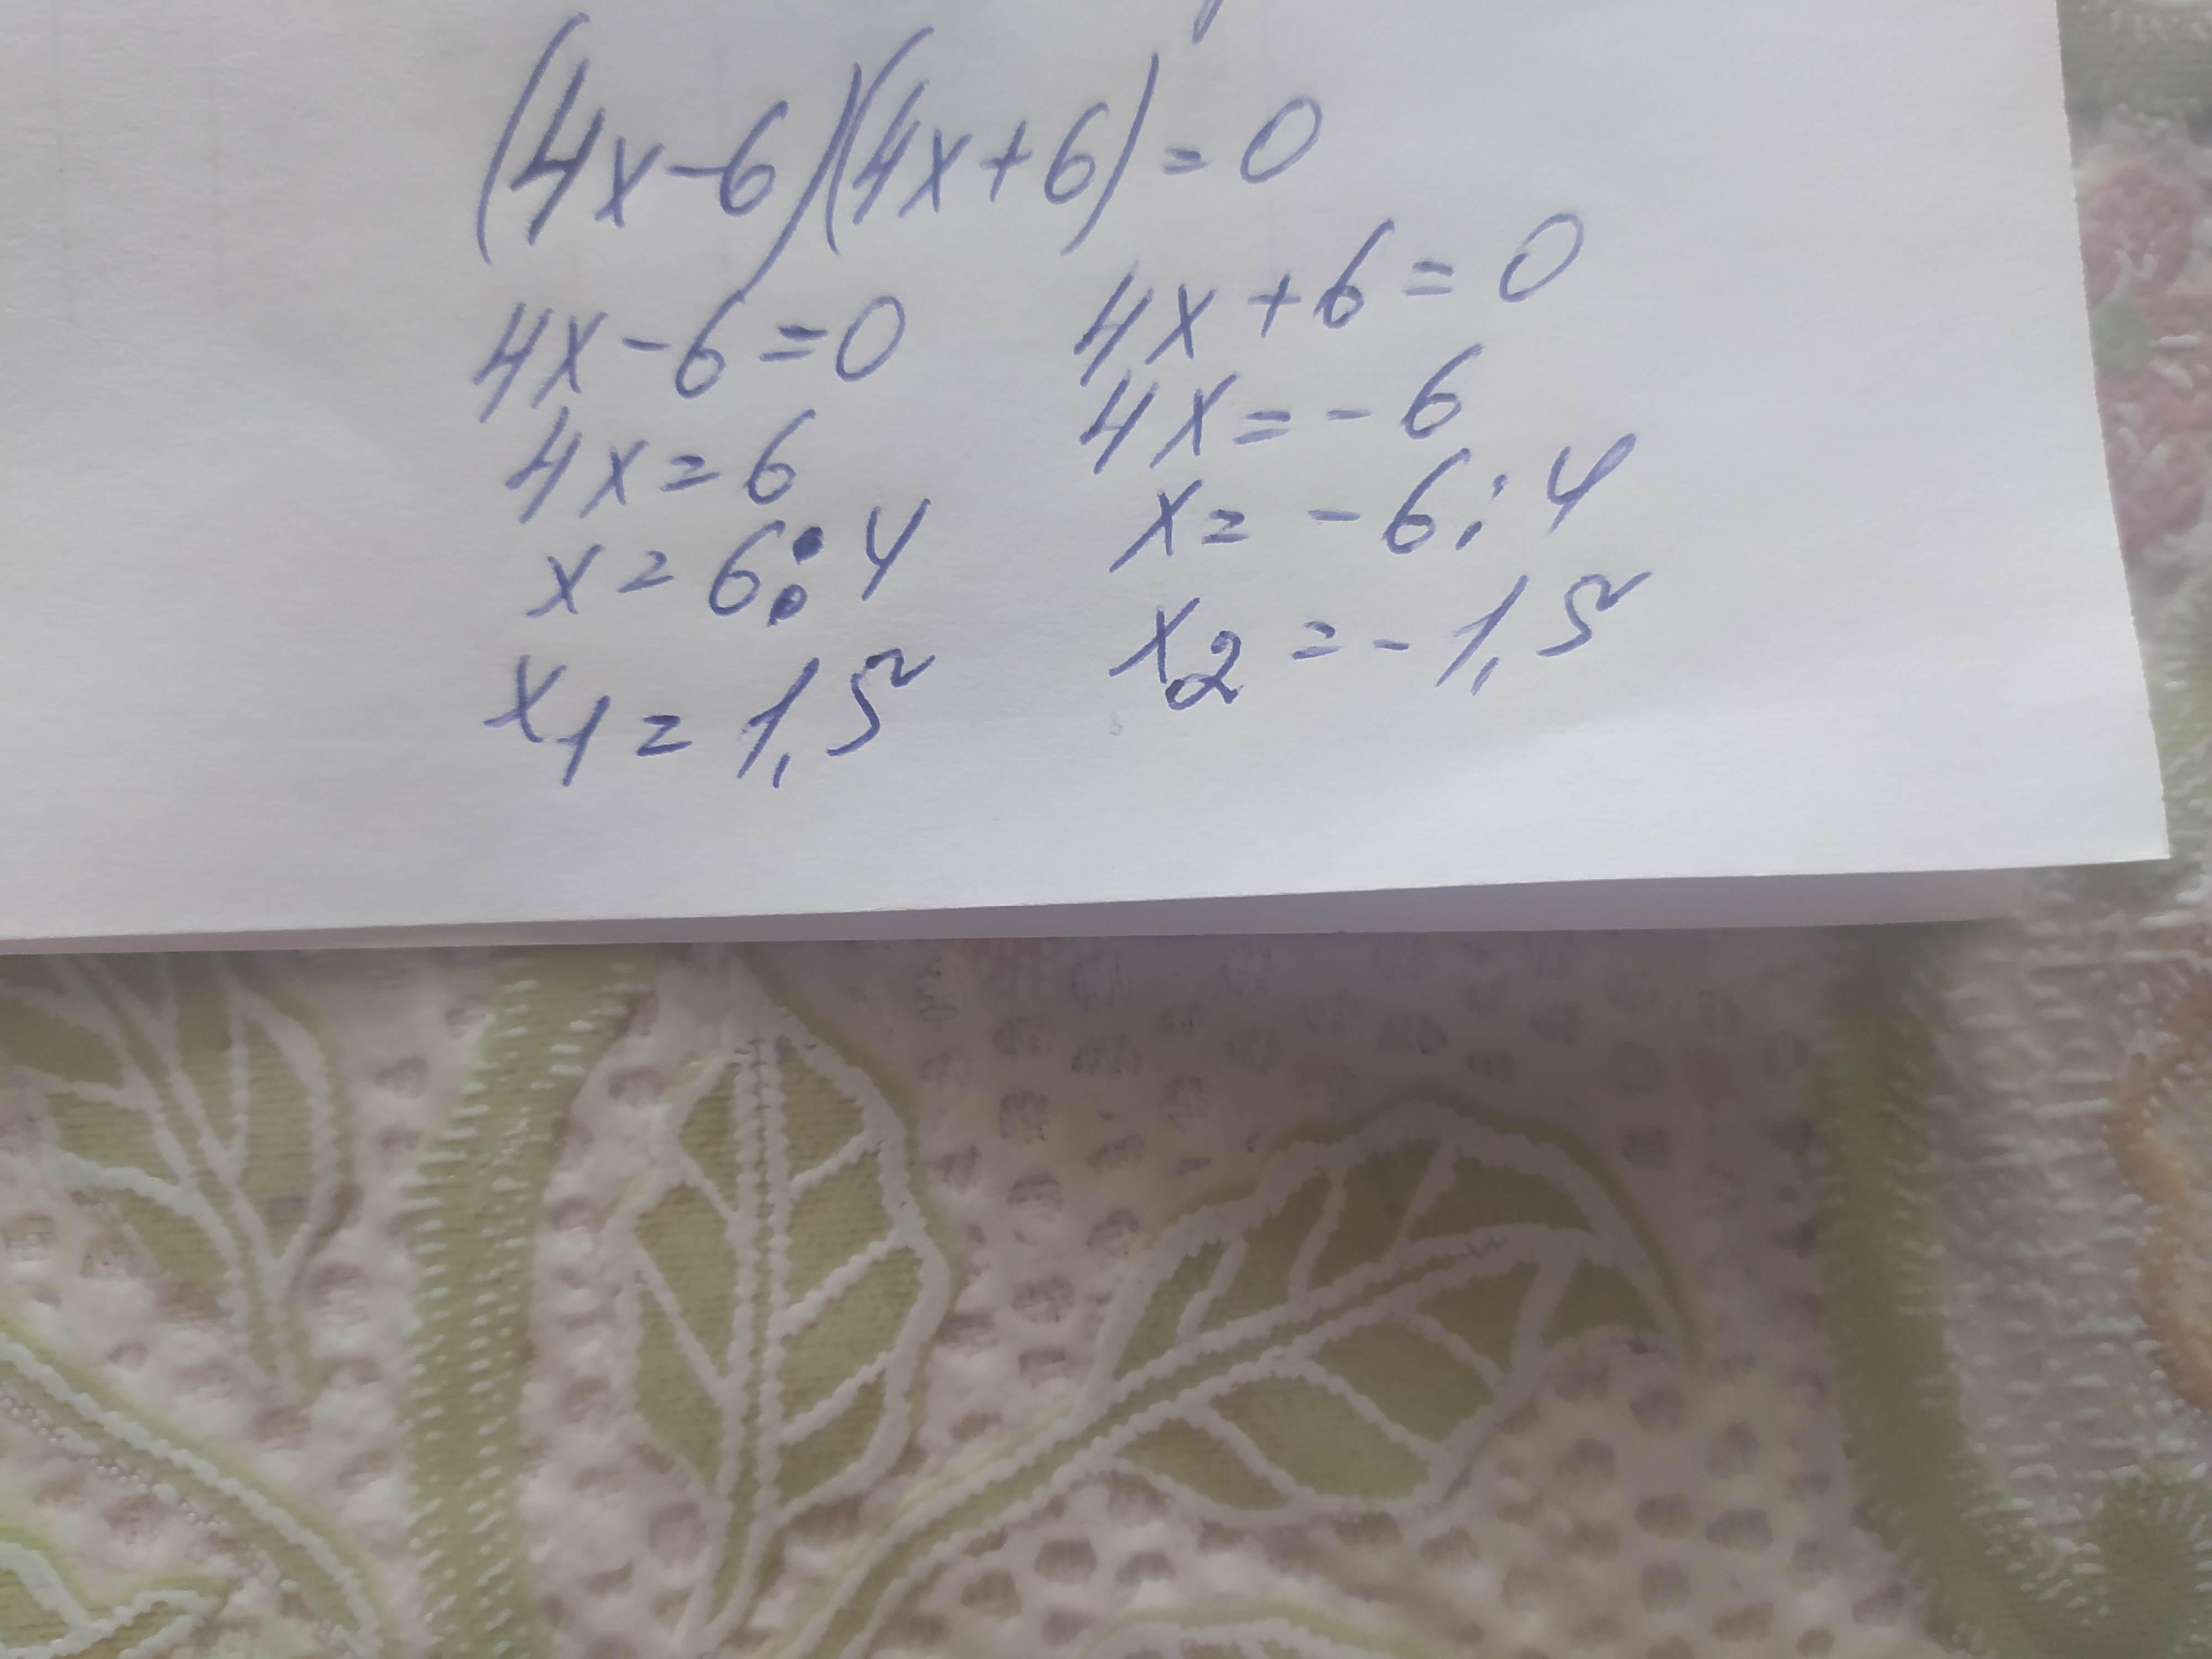 (4x-6)(4x+6)=0
4x-6=0
4x=6
x=6:4
x₁=1,5
4x+6=0
4x=-6
x=-6:4
x₂=-1,5